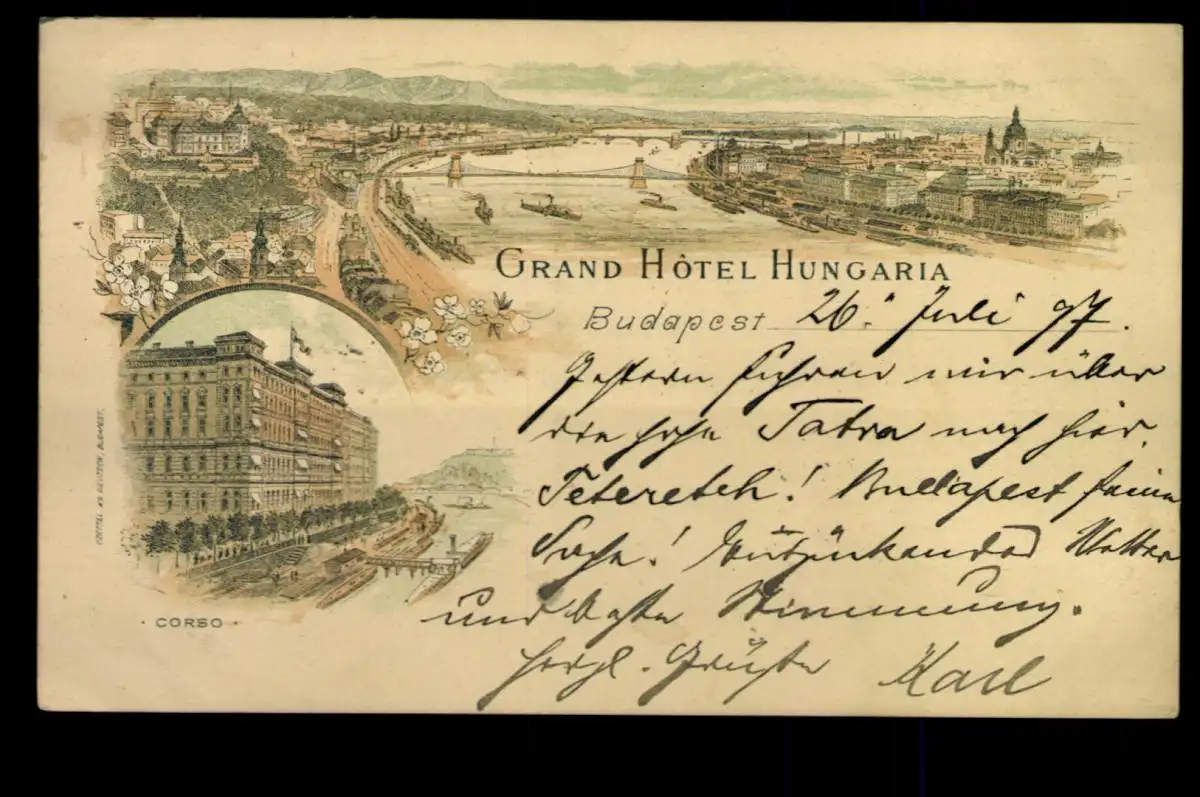 GRAND HÔTEL HUNGARIA
Budapest 26. Juli 97.
Gestern fuhren wir über
die hohe Tatra nach hier.
Budapest feine
Sache! Entzückendes Wetter
und beste Stimmung.
Herzl. Grüße Karl
· CORSO ·